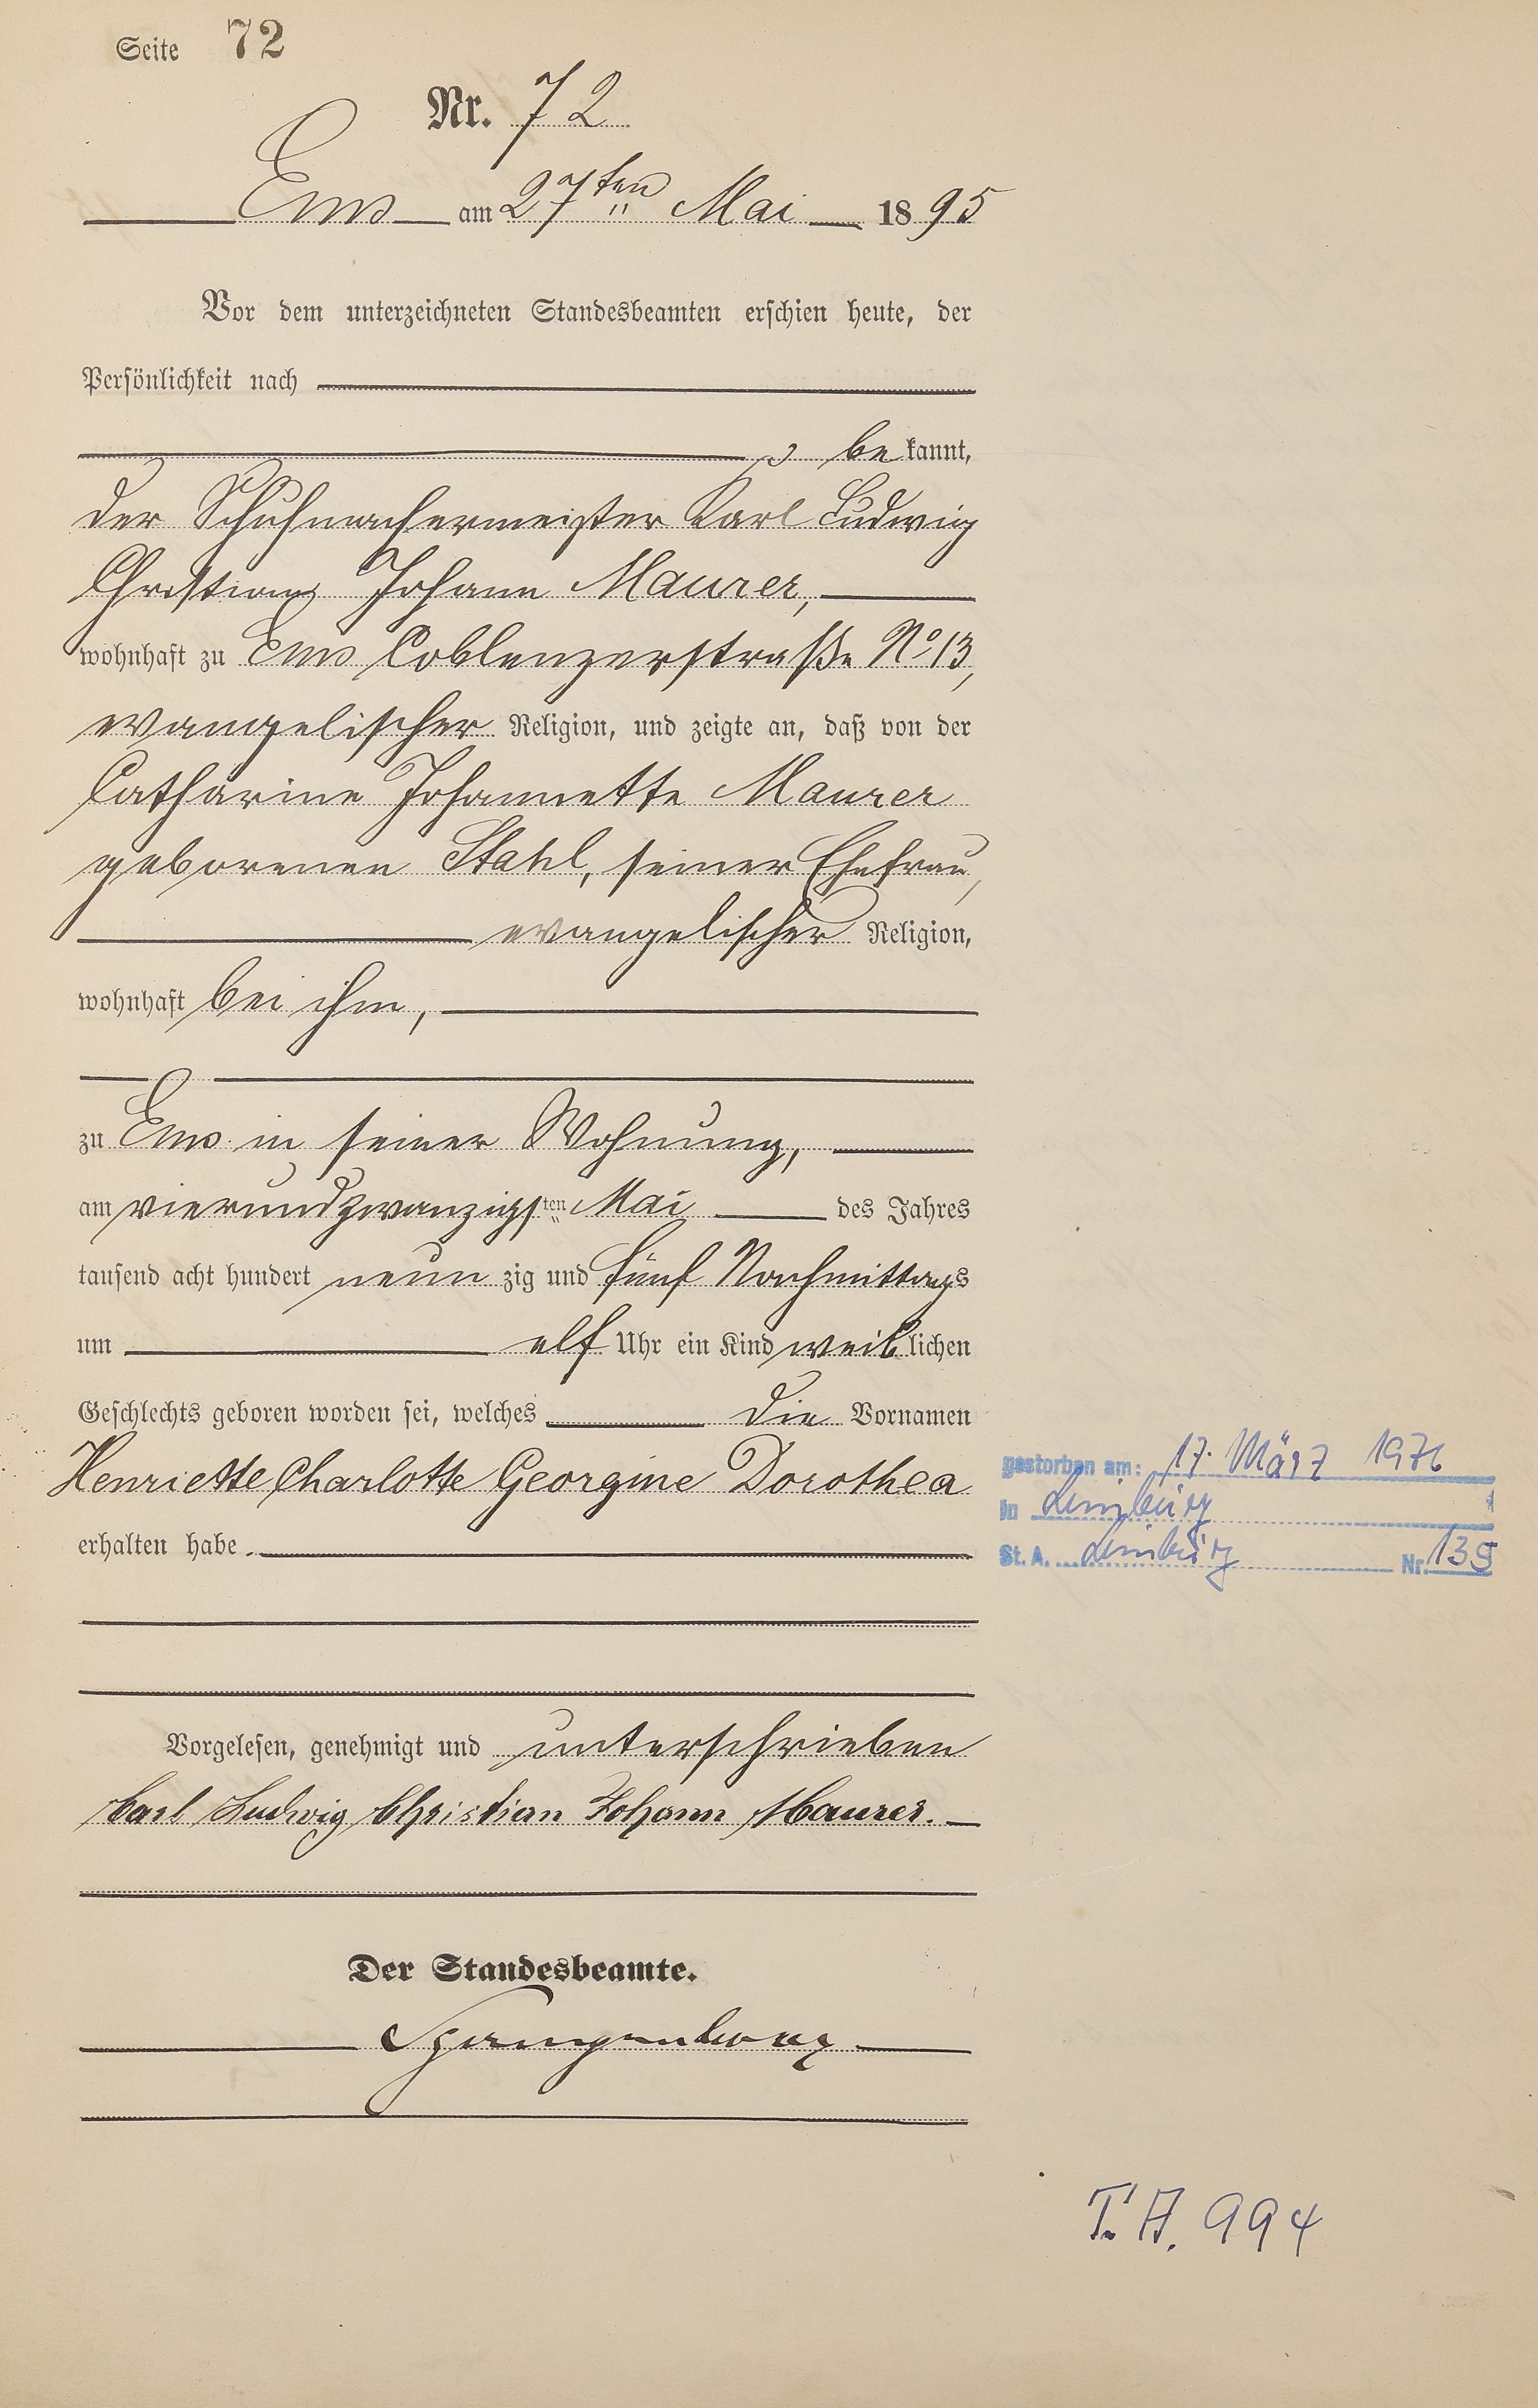 Seite 72
Nr. 72
Ems am 27ten Mai 1895
Vor dem unterzeichneten Standesbeamten erschien heute, der
Persönlichkeit nach
bekannt,
der Schuhmachermeister Karl Ludwig
Christian Johann Maurer,
wohnhaft zu Ems Coblenzerstraße No 13,
evangelischer Religion, und zeigte an, daß von der
Catharine Johannette Maurer
geborenen Stahl, seiner Ehefrau,
evangelischer Religion,
wohnhaft bei ihm,
zu Ems in seiner Wohnung,
am vierundzwanzigsten Mai des Jahres
tausend acht hundert neunzig und fünf Nachmittags
um elf Uhr ein Kind weiblichen
Geschlechts geboren worden sei, welches die Vornamen
Henriette Charlotte Georgine Dorothea
erhalten habe.
gestorben am: 17. März 1976
in Limburg
St. A. Limburg Nr. 139
Vorgelesen, genehmigt und unterschrieben
Carl Ludwig Christian Johann Maurer.
Der Standesbeamte.
Spangenberg
T. A. 994